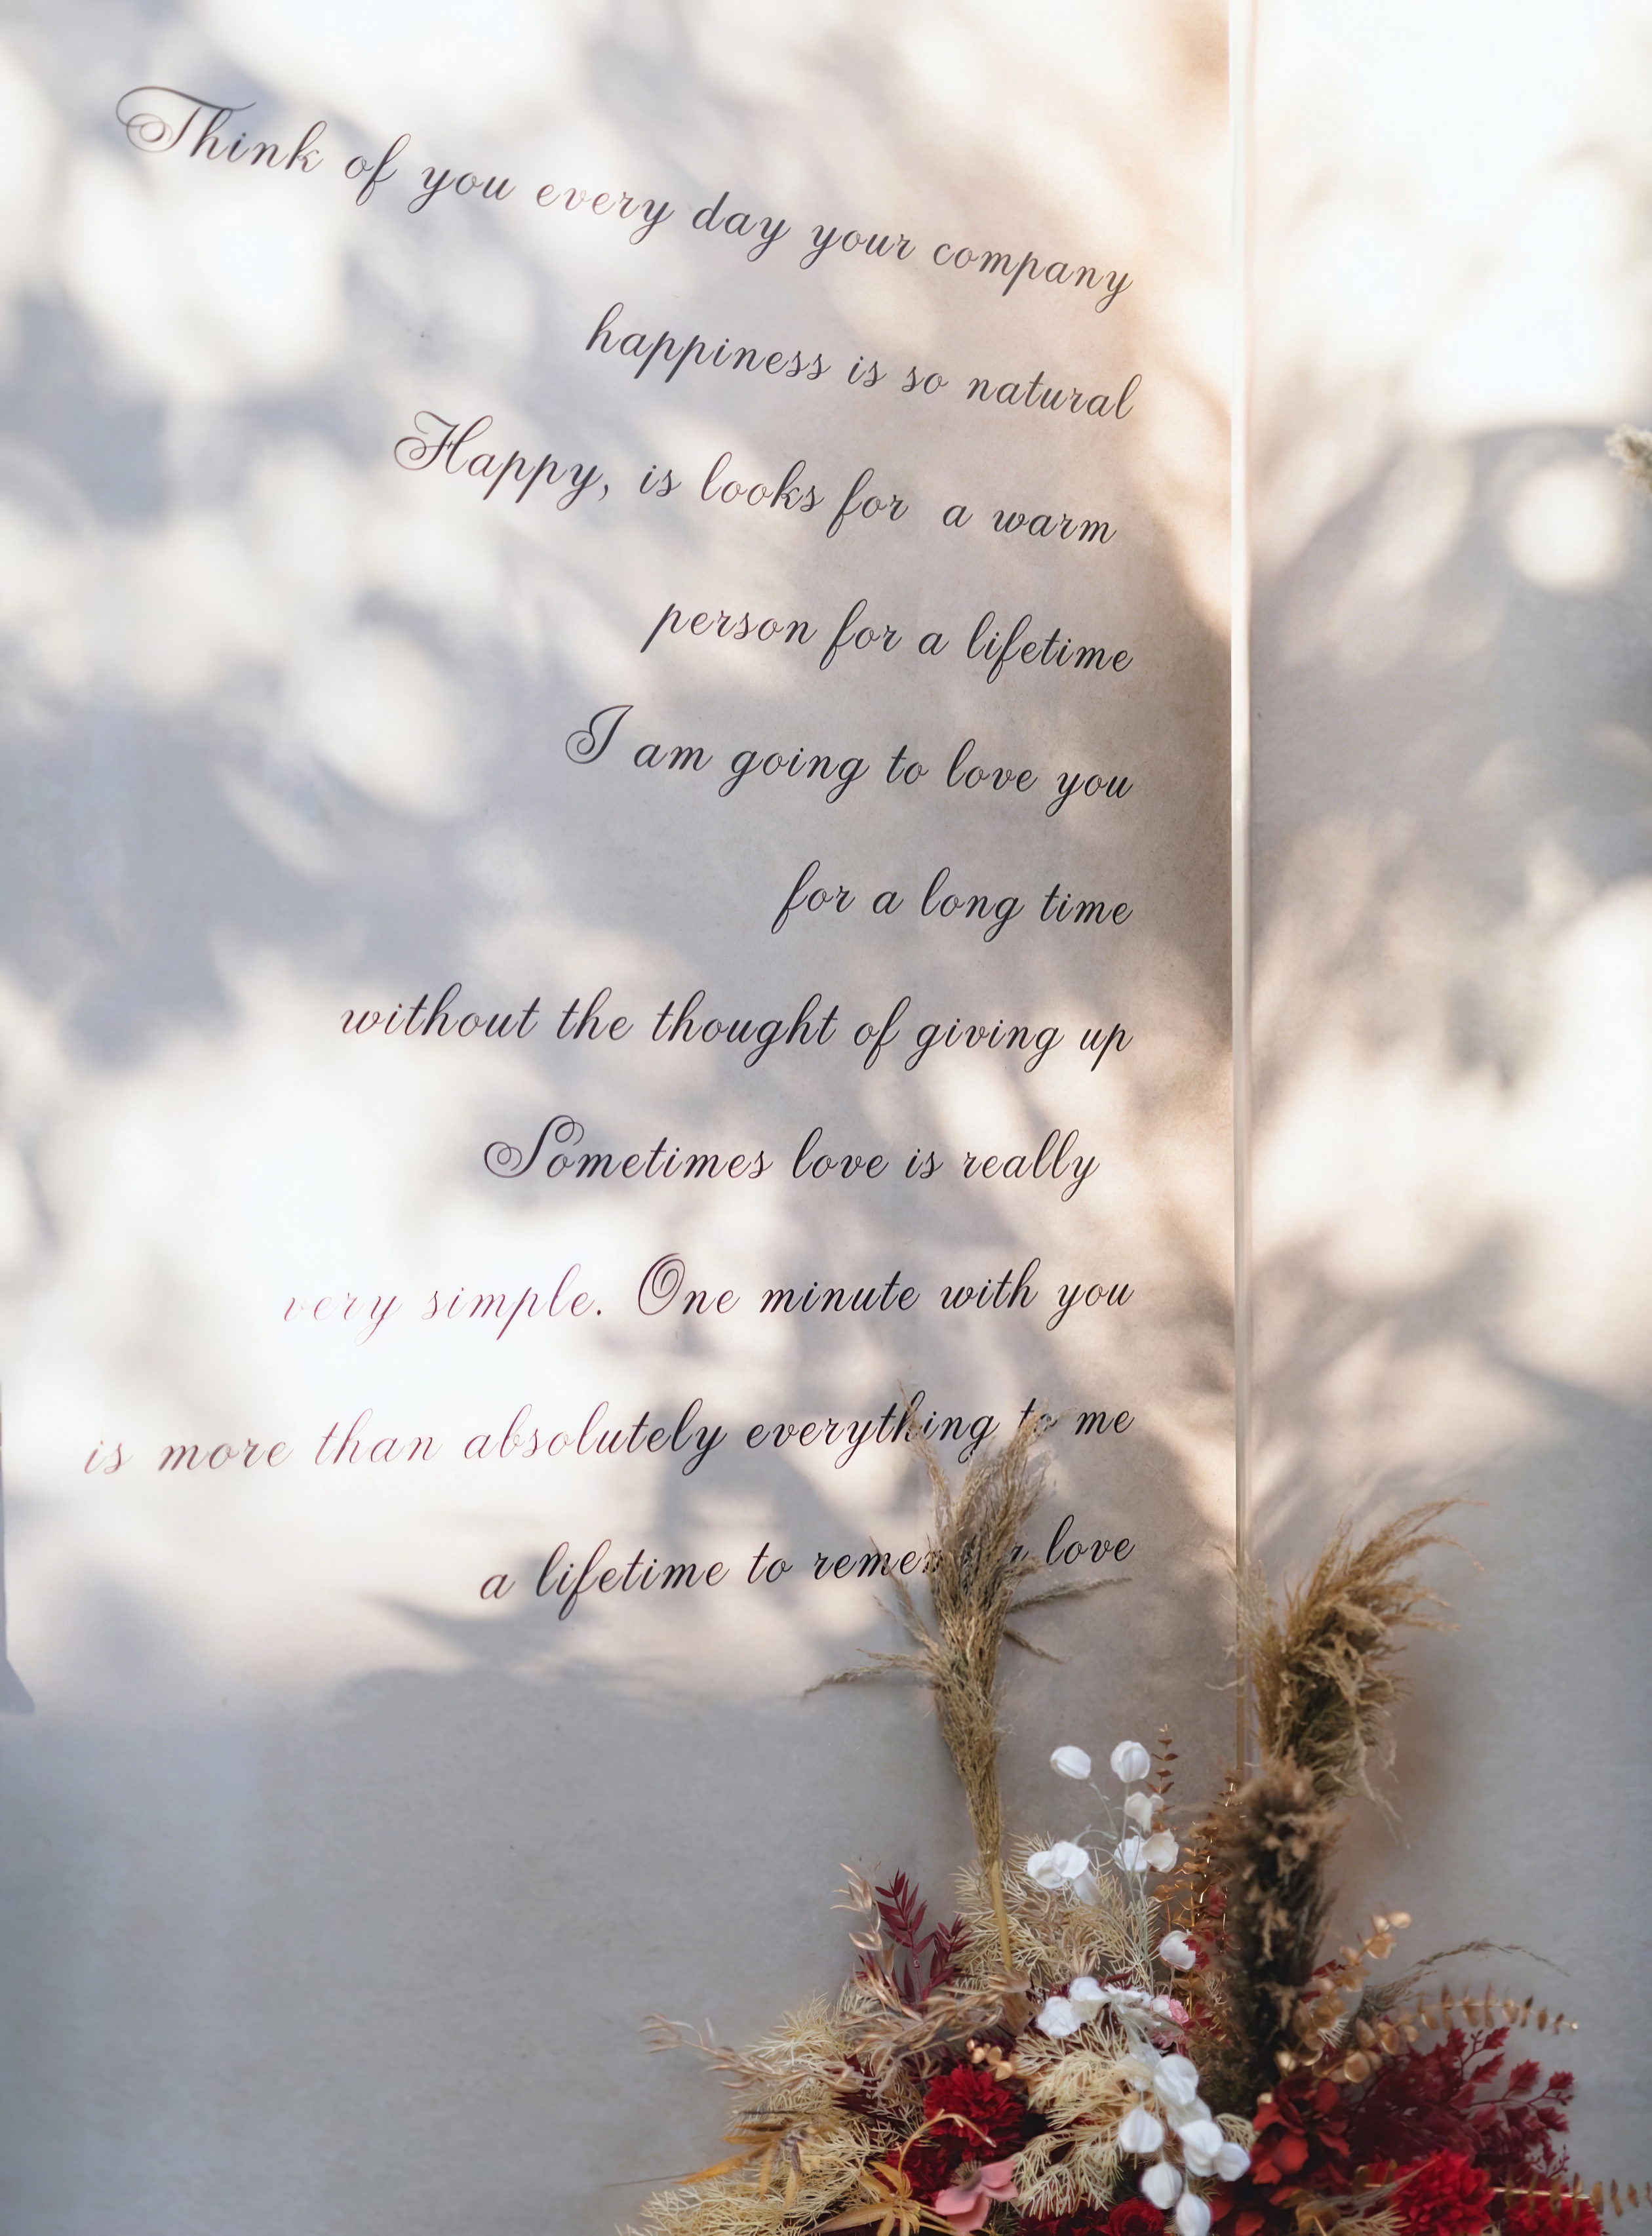 Think of you every day your company
happiness is so natural
Happy, is looks for a warm
person for a lifetime
I am going to love you
for a long time
without the thought of giving up
Sometimes love is really
very simple. One minute with you
is more than absolutely everything to me
a lifetime to love